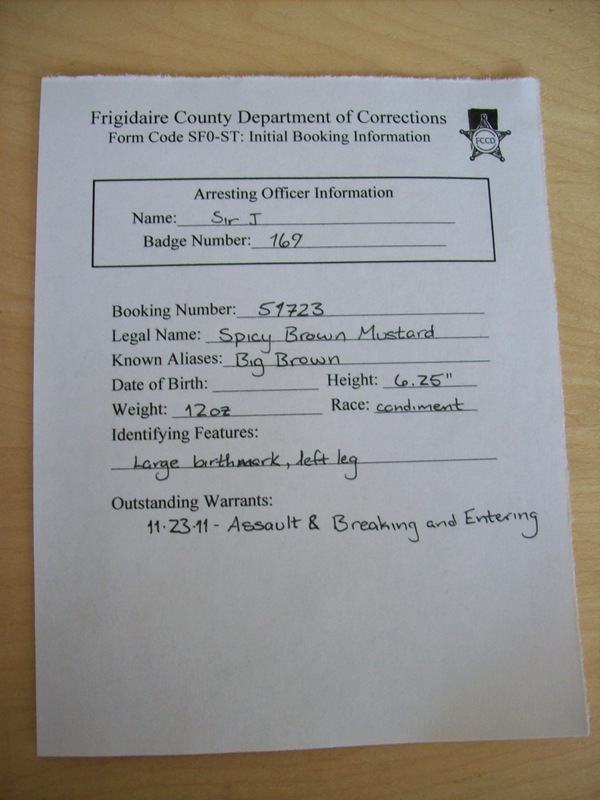 Frigidaire County Department of Corrections
Form Code SF0-ST: Initial Booking Information
FCCD
Arresting Officer Information
Name: Sir J
Badge Number: 169
Booking Number: 51723
Legal Name: Spicy Brown Mustard
Known Aliases: Big Brown
Date of Birth: Height: 6.25"
Weight: 12oz Race: condiment
Identifying Features:
Large birthmark, left leg
Outstanding Warrants:
11.23.11 - Assault & Breaking and Entering